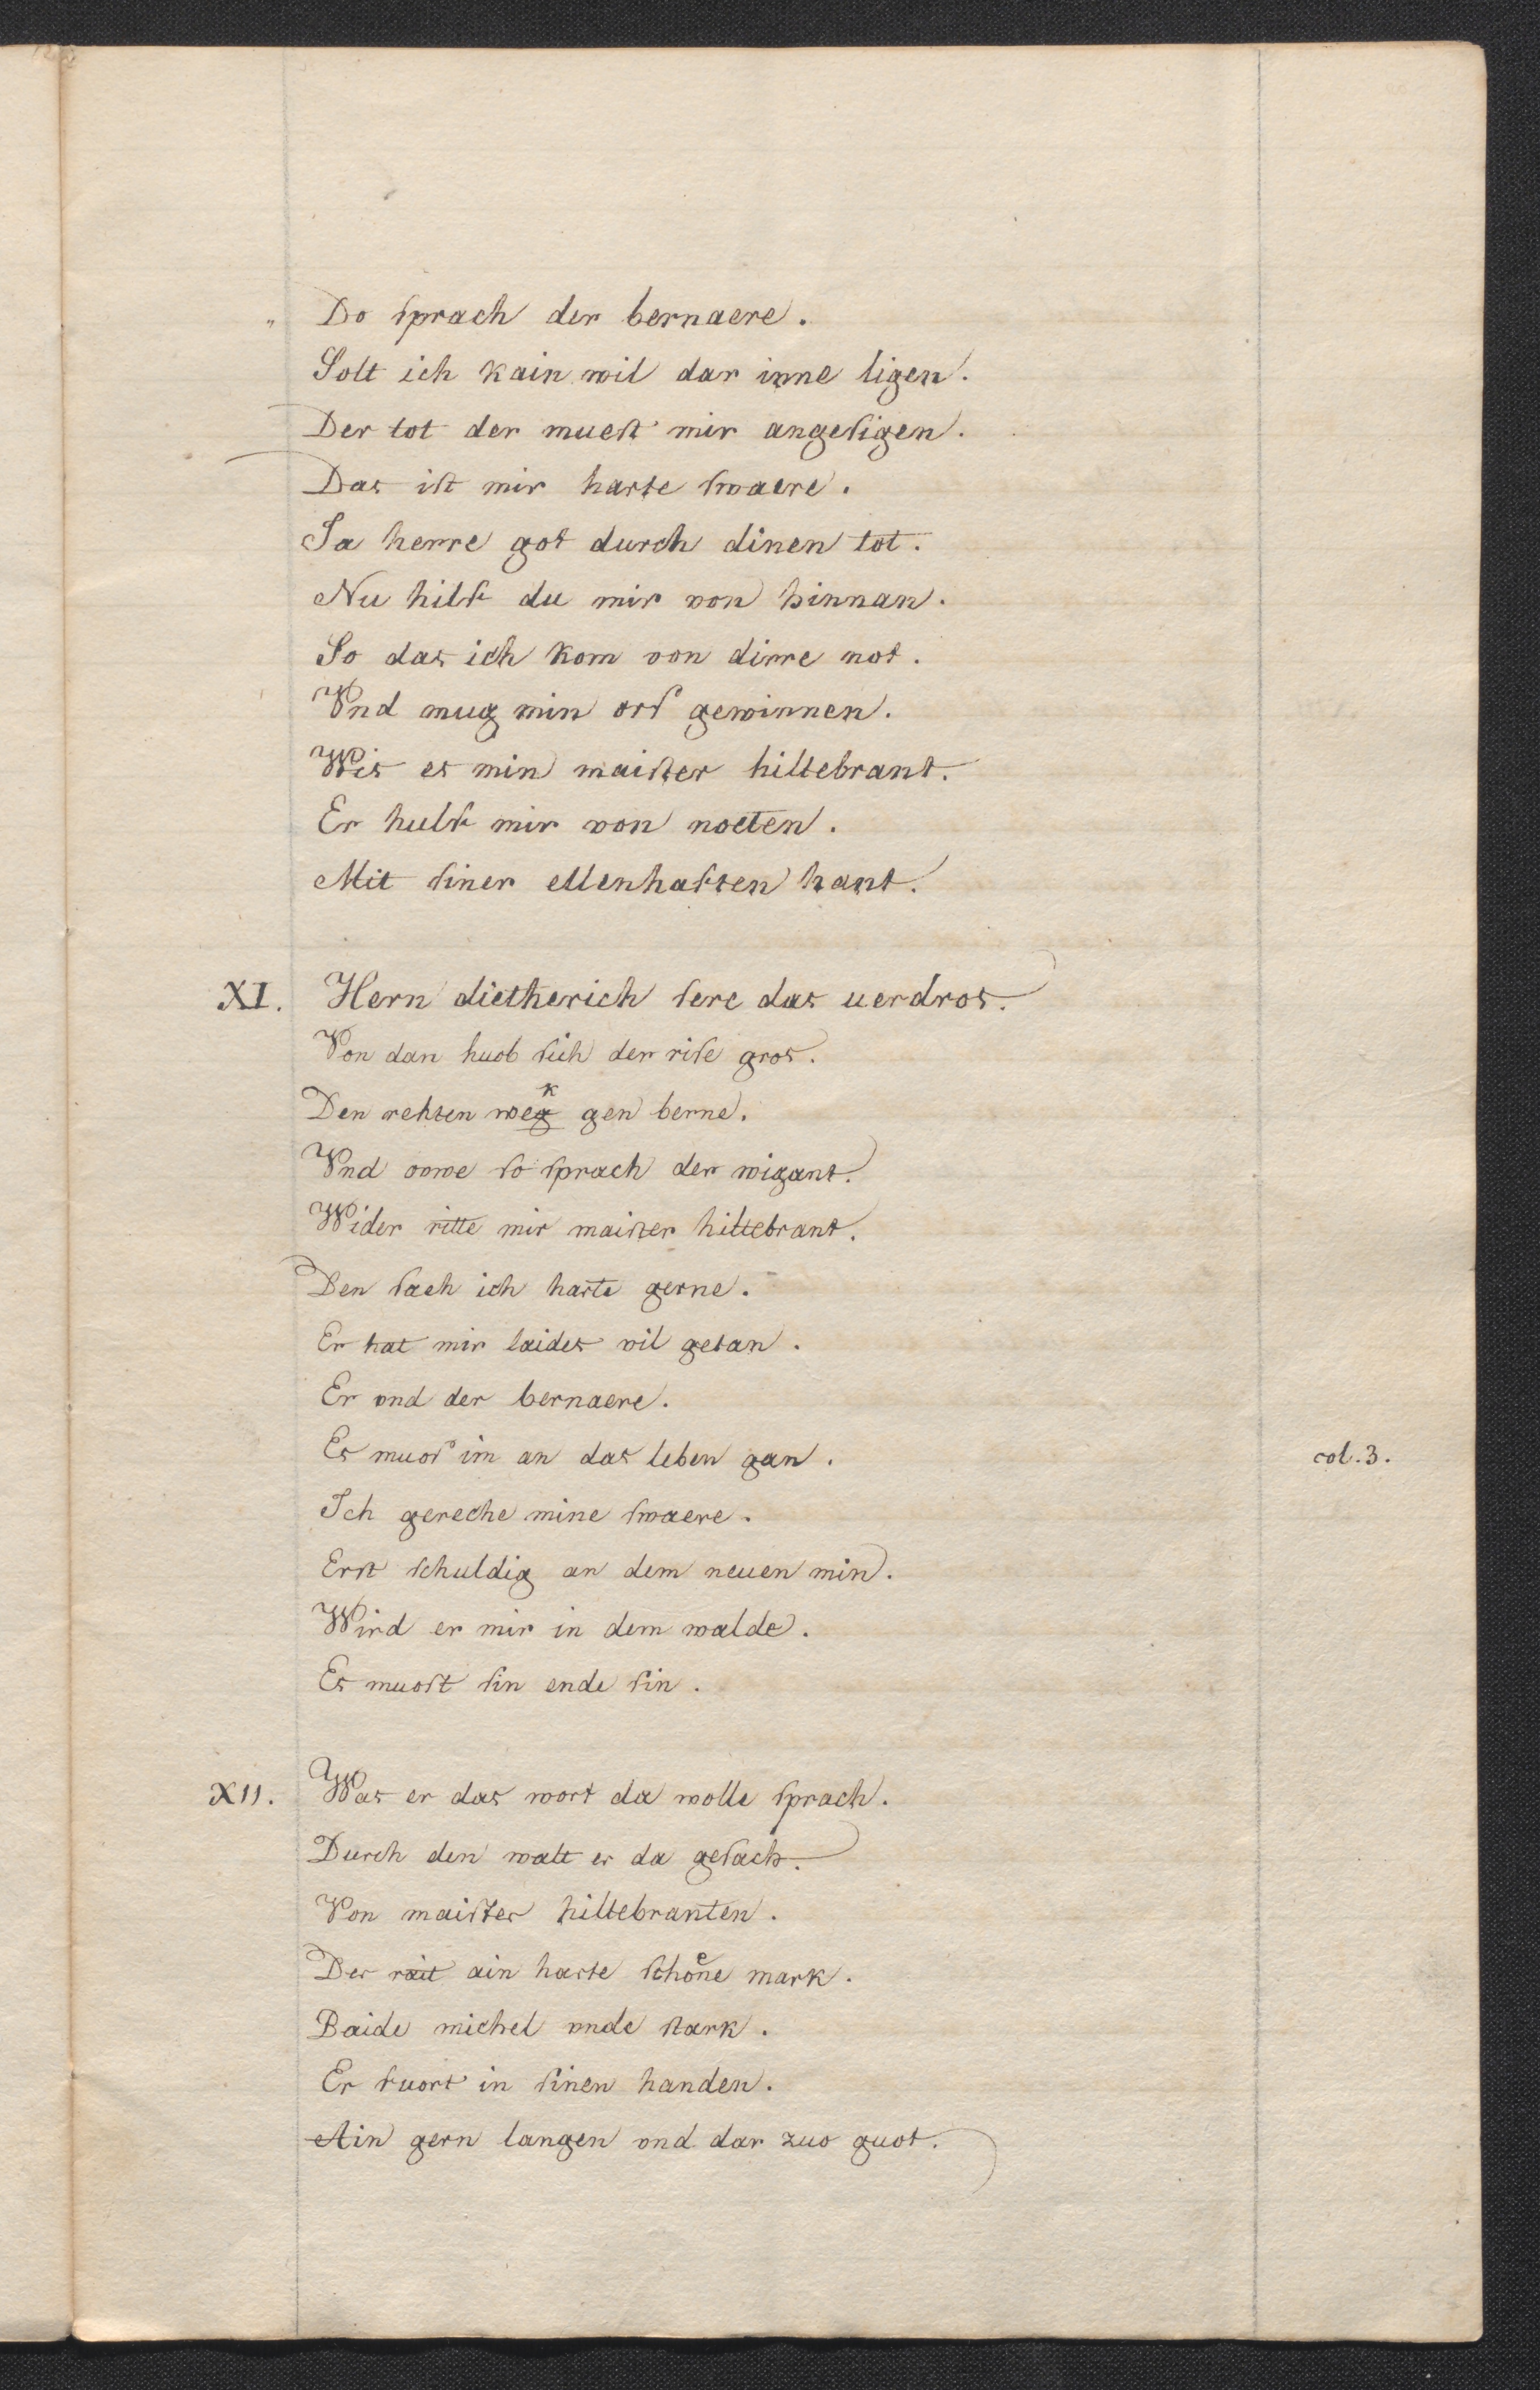 „ Do ſprach der bernaere.
Solt ich kain wil dar inne ligen.
Der tot der mueſt mir angeſigen.
Das iſt mir harte ſwaere.
Ja herre got durch dinen tot.
Nu hilf du mir von hinnan.
So das ich kom von dirre not.
Vnd mug min orſ gewinnen.
Wis es min maiſter hiltebrant.
Er hulf mir von noeten.
Mit ſiner ellenhaften hant.
XI. Hern dietherich ſere das uerdros.
Von dan huob ſich der riſe gros.
Den rehten wegk gen berne.
Vnd oowe ſo ſprach der wigant.
Wider ritte mir maiſter hiltebrant.
Den ſaeh ich harte gerne.
Er hat mir laides vil getan.
Er vnd der bernaere.
Es muoſ im an das leben gan. col. 3.
Ich gereche mine ſwaere.
Erſt ſchuldig an dem neuen min.
Wird er mir in dem walde.
Es muoſt ſin ende ſin.
XII. Was er das wort da wolle ſprach.
Durch den walt er da geſach.
Von maiſter hiltebranten.
Der rait ain harte ſchoͤne mark.
Baide michel vnde ſtark.
Er fuort in ſinen handen.
Ain gern langen vnd dar zuo guot.